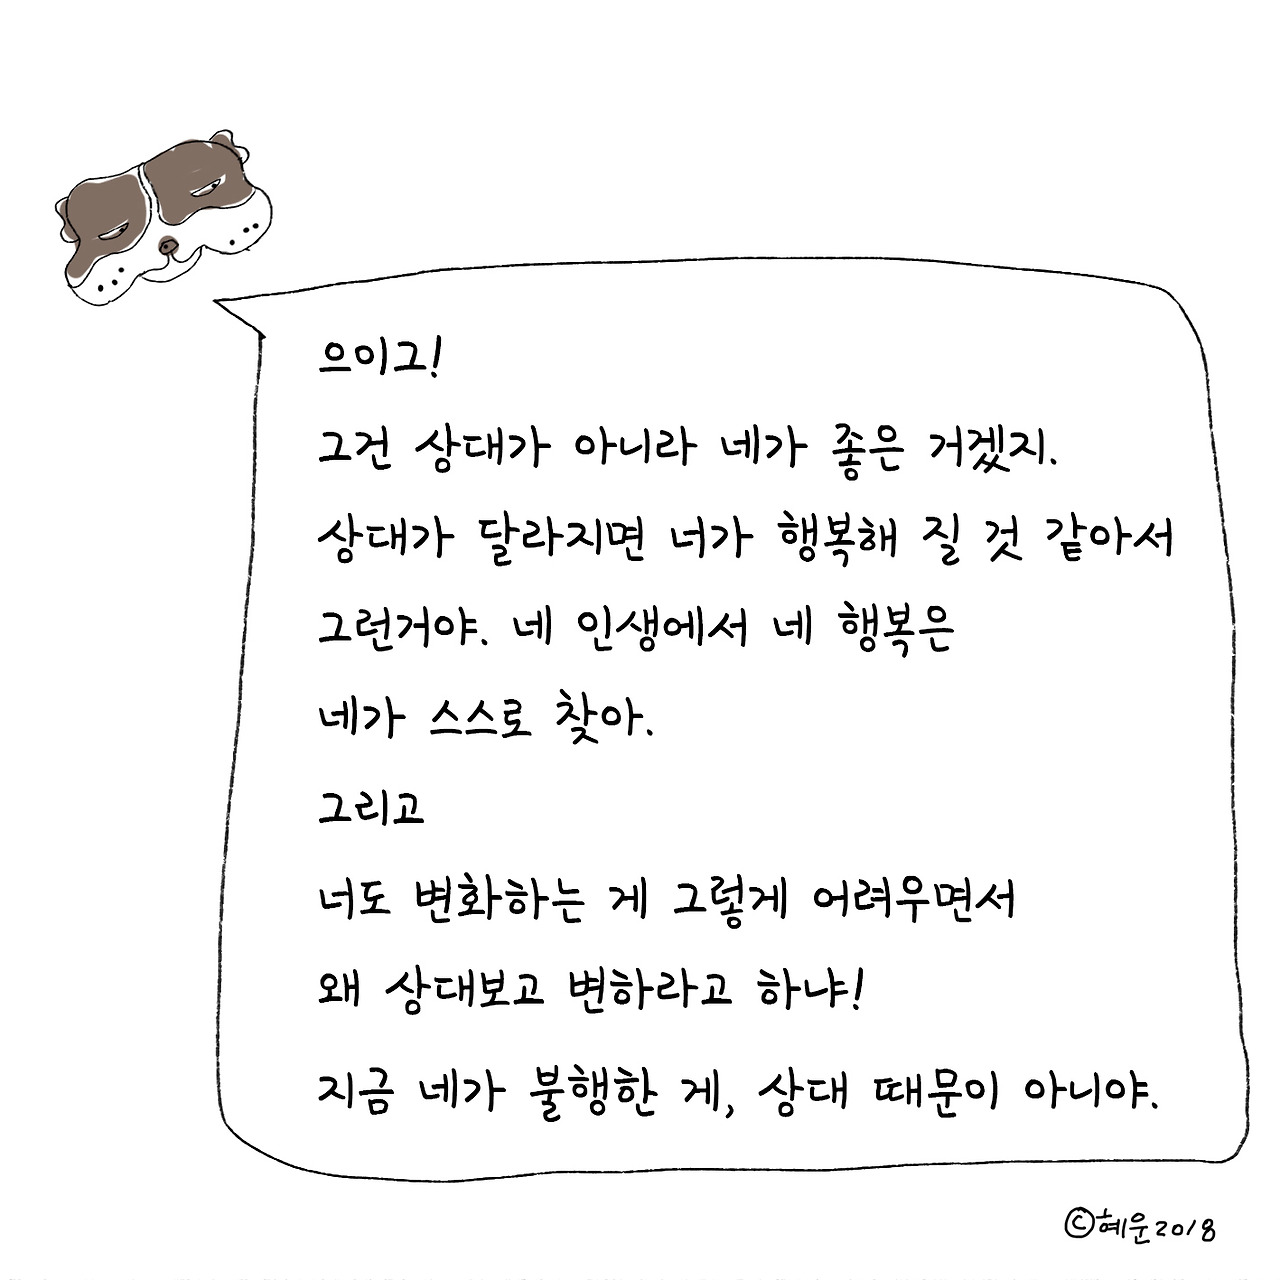 으이그!
그건 상대가 아니라 네가 좋은 거겠지.
상대가 달라지면 너가 행복해 질 것 같아서
그런거야. 네 인생에서 네 행복은
네가 스스로 찾아.
그리고
너도 변화하는 게 그렇게 어려우면서
왜 상대보고 변하라고 하냐!
지금 네가 불행한 게, 상대 때문이 아니야.
©혜운2018